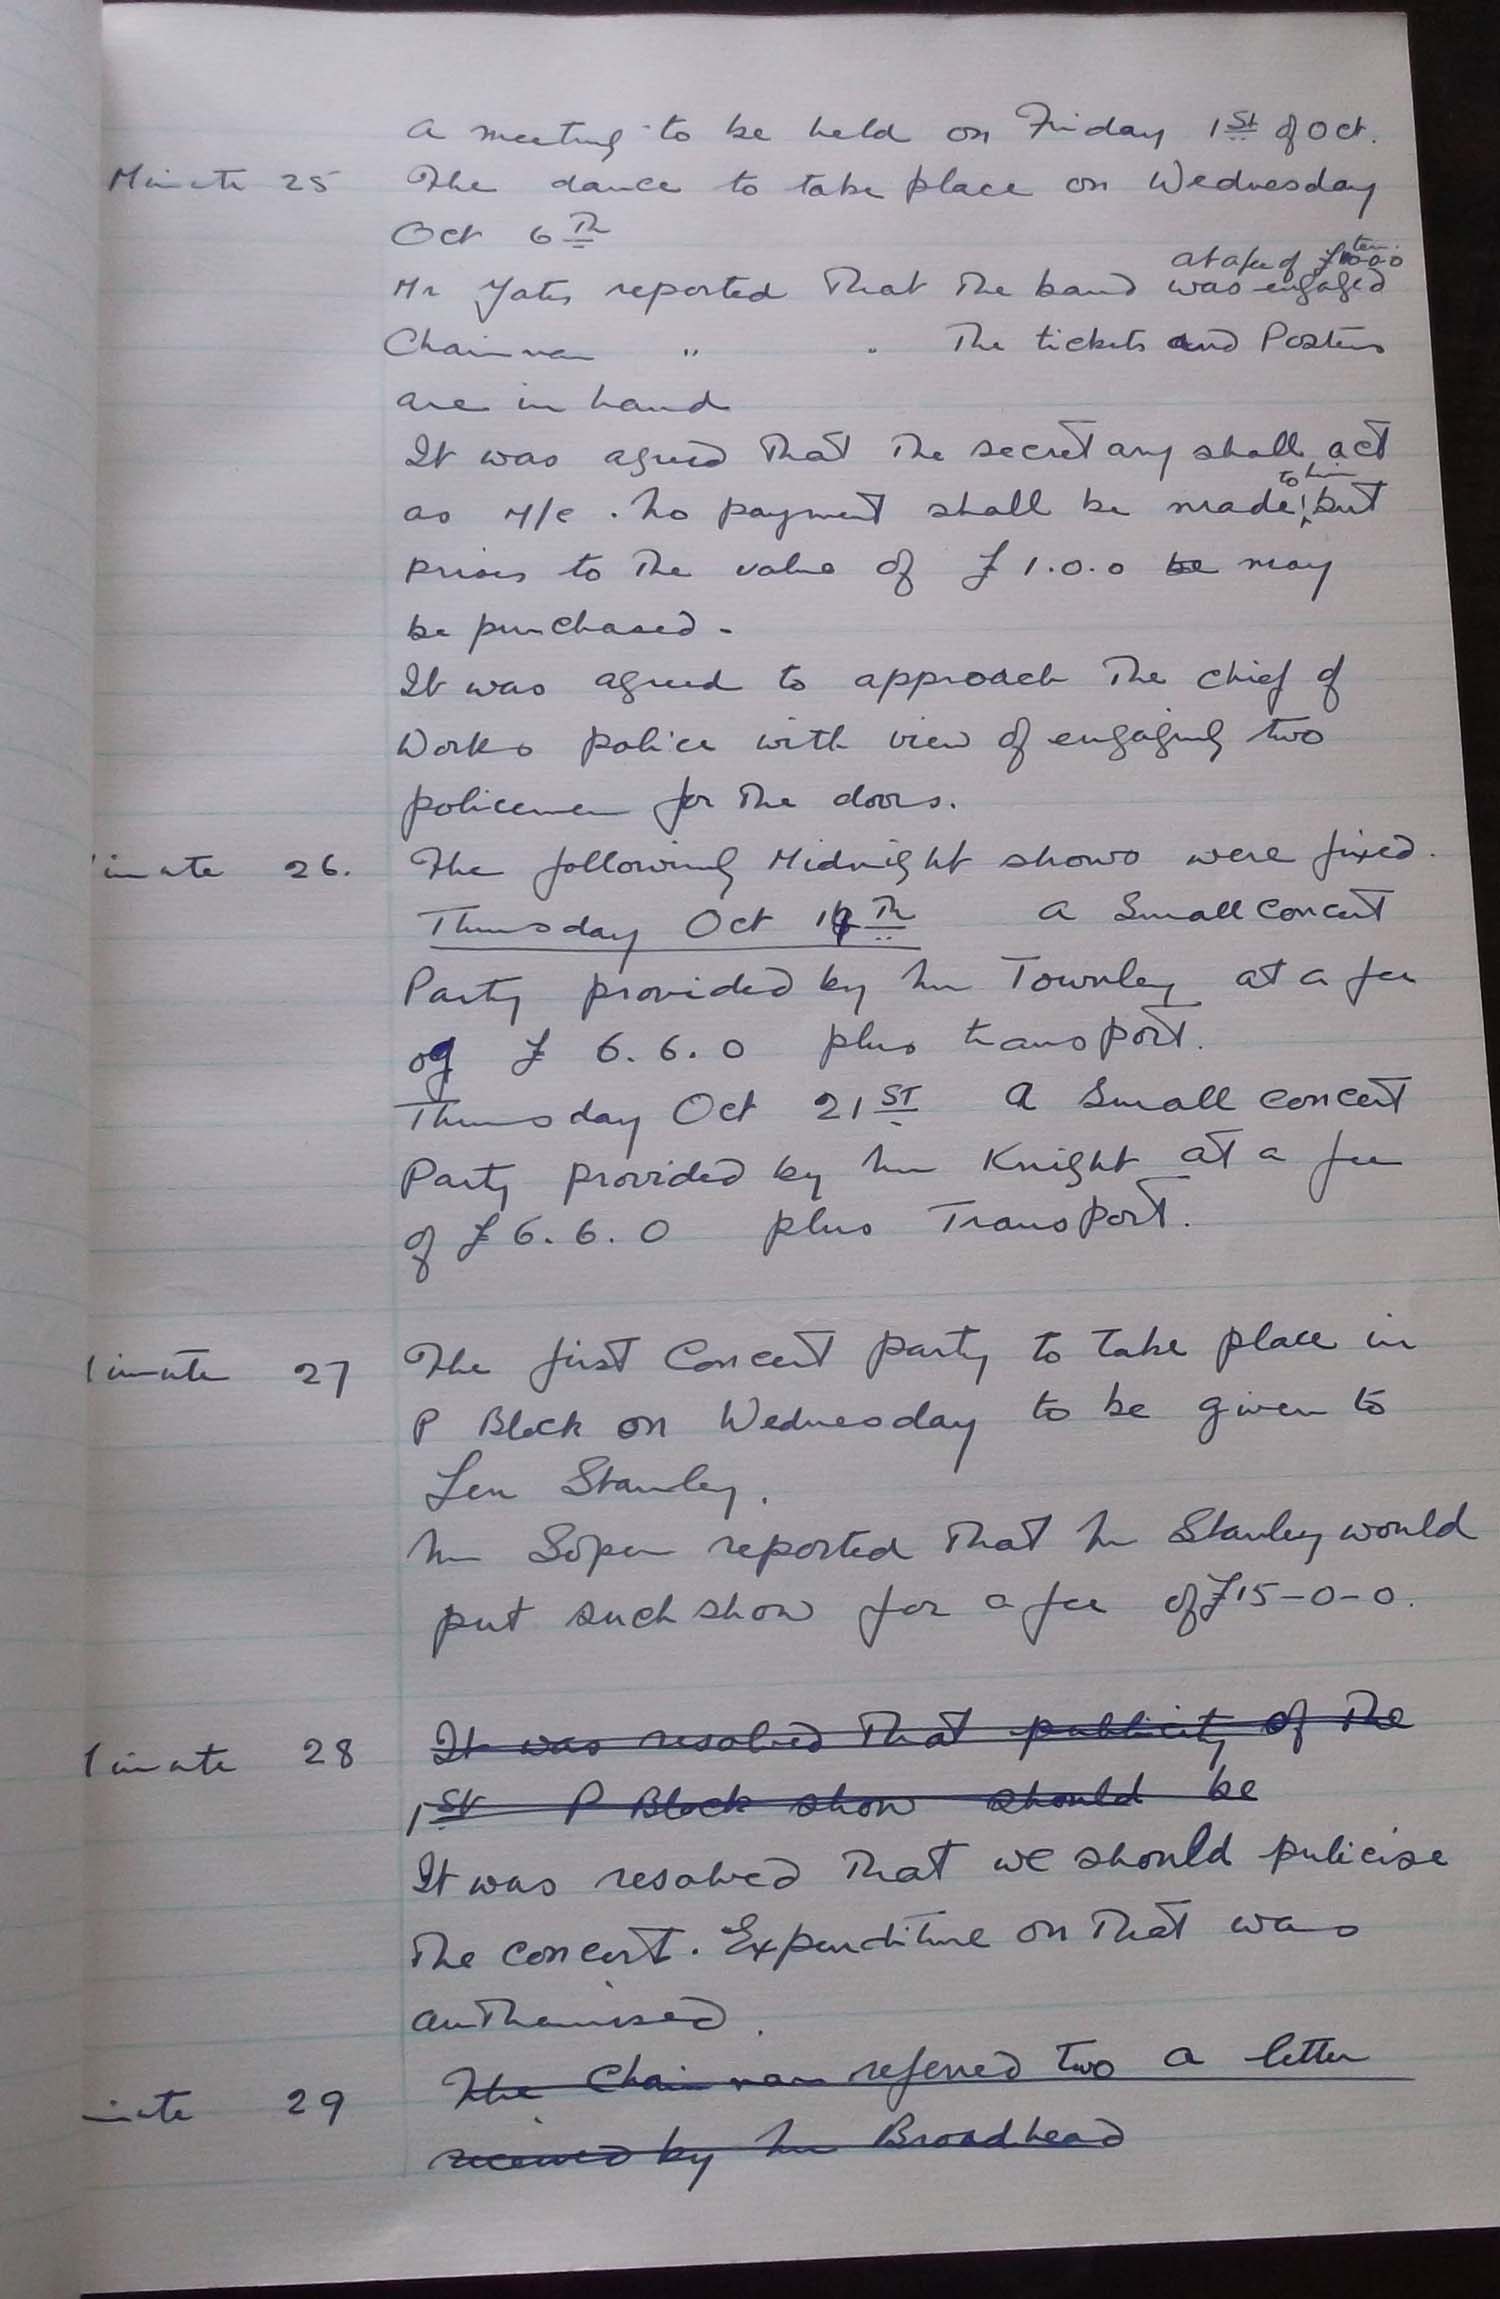 a meeting to be held on Friday 1st of Oct.
Minute 25 The dance to take place on Wednesday
Oct 6Th
at a fee of ten
Mr Yates reported That The band was engaged
Chairman " . The tickets and Posters
are in hand
It was agreed That The secretary shall act
to him
as M/C. No payment shall be made, but
prises to The value of £1.0.0 be may
be purchased.
It was agreed to approach The chief of
Works police with view of engaging two
policemen for The doors.
inute 26. The following Midnight shows were fixed.
Thursday Oct Th A Small Concert
Party provided by Mr Townley at a fee
of £ 6.6.0 plus transport.
Thursday Oct 21ST A Small concert
Party provided by Mr Knight at a fee
of £6.6.0 plus Transport.
inute 27 The first Concert party to take place in
P Block on Wednesday to be given to
Len Stanley.
Mr Soper reported That Mr Stanley would
put such show for a fee of £15-0-0.
inute 28 It was resolved That publicity of The
1st P Block show should be
It was resolved That we should pulicise
The concert. Expenditure on That was
authorised.
inute 29 The Chairman referred two a letter
received by Mr Broadhead